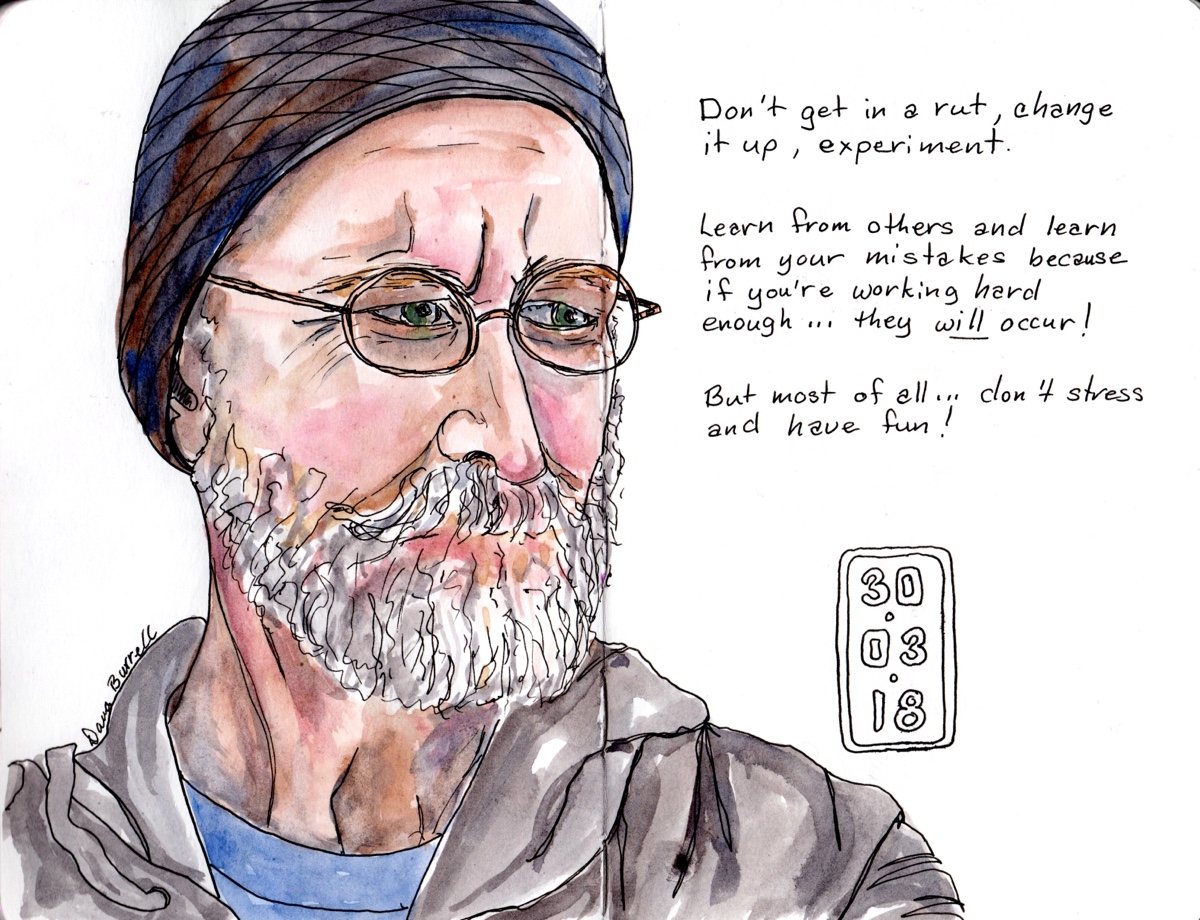 Don't get in a rut, change
it up, experiment.
Learn from others and learn
from your mistakes because
if you're working hard
enough... they will occur!
But most of all... don't stress
and have fun!
30
.
03
.
18
Dave Burrell